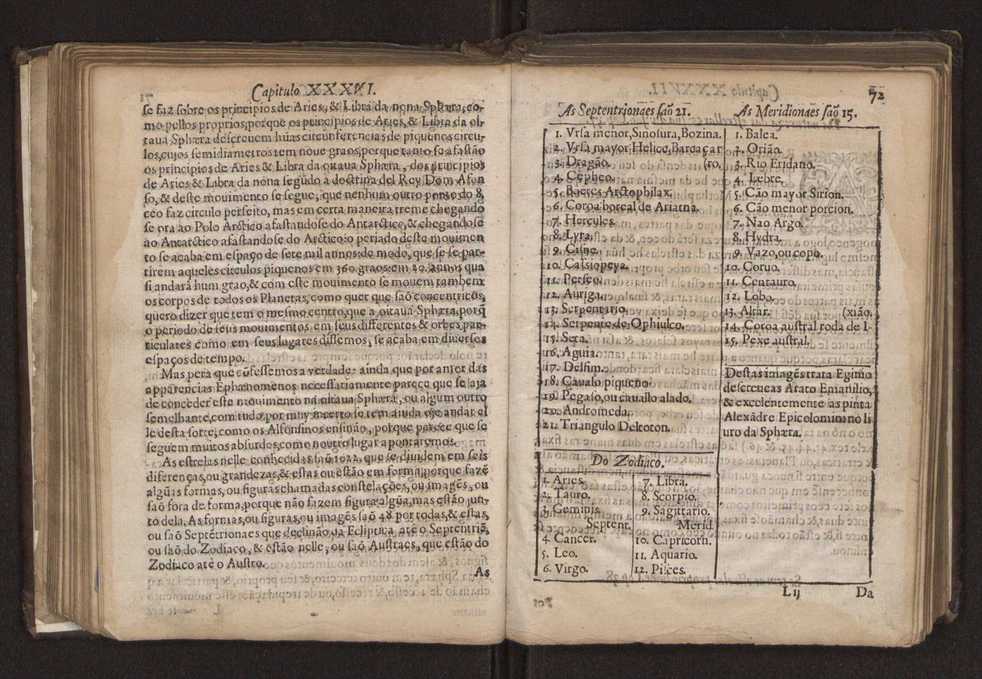 Capitulo XXXVI.
se faz sobre os principios de Aries, & Libra da nona Sphæra, co-
mo pollos proprios, porque os principios de Aries, & Libra da oi-
taua Sphæra descreuem hũas circunferencias de piquenos circu-
los, cujos semidiametros tem noue graos, porque tanto se afastão
os principios de Aries & Libra da oitaua Sphæra, dos principios
de Aries & Libra da nona segũdo a doctrina del Rey Dom Afon
so, & deste mouimento se segue, que nenhum outro ponto do 8.
ceo faz circulo perfeito, mas em certa maneira treme chegando
se ora ao Polo Arctico afastandose do Antarctico, & chegandose
ao Antarctico afastandose do Arctico: o periodo deste mouimen
to se acaba em espaço de sete mil annos de modo, que se se par-
tirem aqueles circulos piquenos em 360. graos, em 20. annos qua
si andará hum grao, & com este mouimento se mouem tambem
os corpos de todos os Planetas, como quer que saõ concentricos,
quero dizer que tem o mesmo centro, que a oitaua Sphæra, porq̃
o periodo de seus mouimentos em seus differentes & orbes par-
ticulares como em seus lugares dissemos, se acaba em diuersos
espaços de tempo.
Mas pera que cõfessemos a verdade: ainda que por antre das
apparencias Ephænomenos necessariamente pareçe que se aja
de conceder este mouimento na oitaua Sphæra, ou algum outro
semelhante, com tudo, por muy incerto se tem ainda oje andar el
le desta sorte, como os Alfonsinos ensinão, porque parece que se
seguem muitos absurdos, como noutro lugar apontaremos.
As estrelas nelle conhecidas saõ 1022. que se diuidem em seis
diferenças, ou grandezas, & estas ou estão em forma, porque fazẽ
algũas formas, ou figuras chamadas constelações, ou imagẽs, ou
saõ fora de forma, porque não fazem figura algũa, mas estão jun-
to dela. As formas, ou figuras, ou imagẽs saõ 48 por todas, & estas,
ou saõ Septẽtrionaes que declinão da Ecliptica até o Septentriã,
ou saõ do Zodiaco, & estão nelle, ou saõ Austraes, que estão do
Zodiaco até o Austro.
As
72
As Septentrionaes saõ 21.
1. Vrsa menor, Sinosura, Bozina.
2. Vrsa mayor, Helice, Barca, car
3. Dragão. (ro,
4. Cepheo.
5. Bootes Arctophilax.
6. Coroa boreal de Ariatna.
7. Hercules.
8. Lyra.
9. Cisne.
10. Cassiopeya.
11. Perseo.
12. Auriga.
13. Serpentario.
14. Serpente de Ophiulco.
15. Seta.
16. Aguia.
17. Delfim.
18. Cauaso piqueno.
19. Pegaso, ou cauallo alado.
20. Andromeda.
21. Triangulo Deltoton.
As Meridionaes saõ 15.
1. Balea.
2. Orião.
3. Rio Eridano.
4. Lebre.
5. Cão mayor Sirion.
6. Cão menor porcion.
7. Nao Argo.
8. Hydra.
9. Vazo, ou copo.
10. Coruo.
11. Centauro.
12. Lobo.
13. Altar. (xião.
14. Coroa austral roda de I-
15. Pexe austral.
Destas imagẽs trata Eginio
desereneas Arato Emanilio,
& excelentemente as pinta
Alexãdre Epicolomino no li
uro da Sphæra.
Do Zodiaco.
1. Aries.
2. Tauro.
3. Geminis.
Septent.
4. Cancer.
5. Leo.
6. Virgo.
7. Libra.
8. Scorpio.
9. Sagittario.
Merid.
10. Capricorn.
11. Aquario.
12. Pisces.
Lij
Da